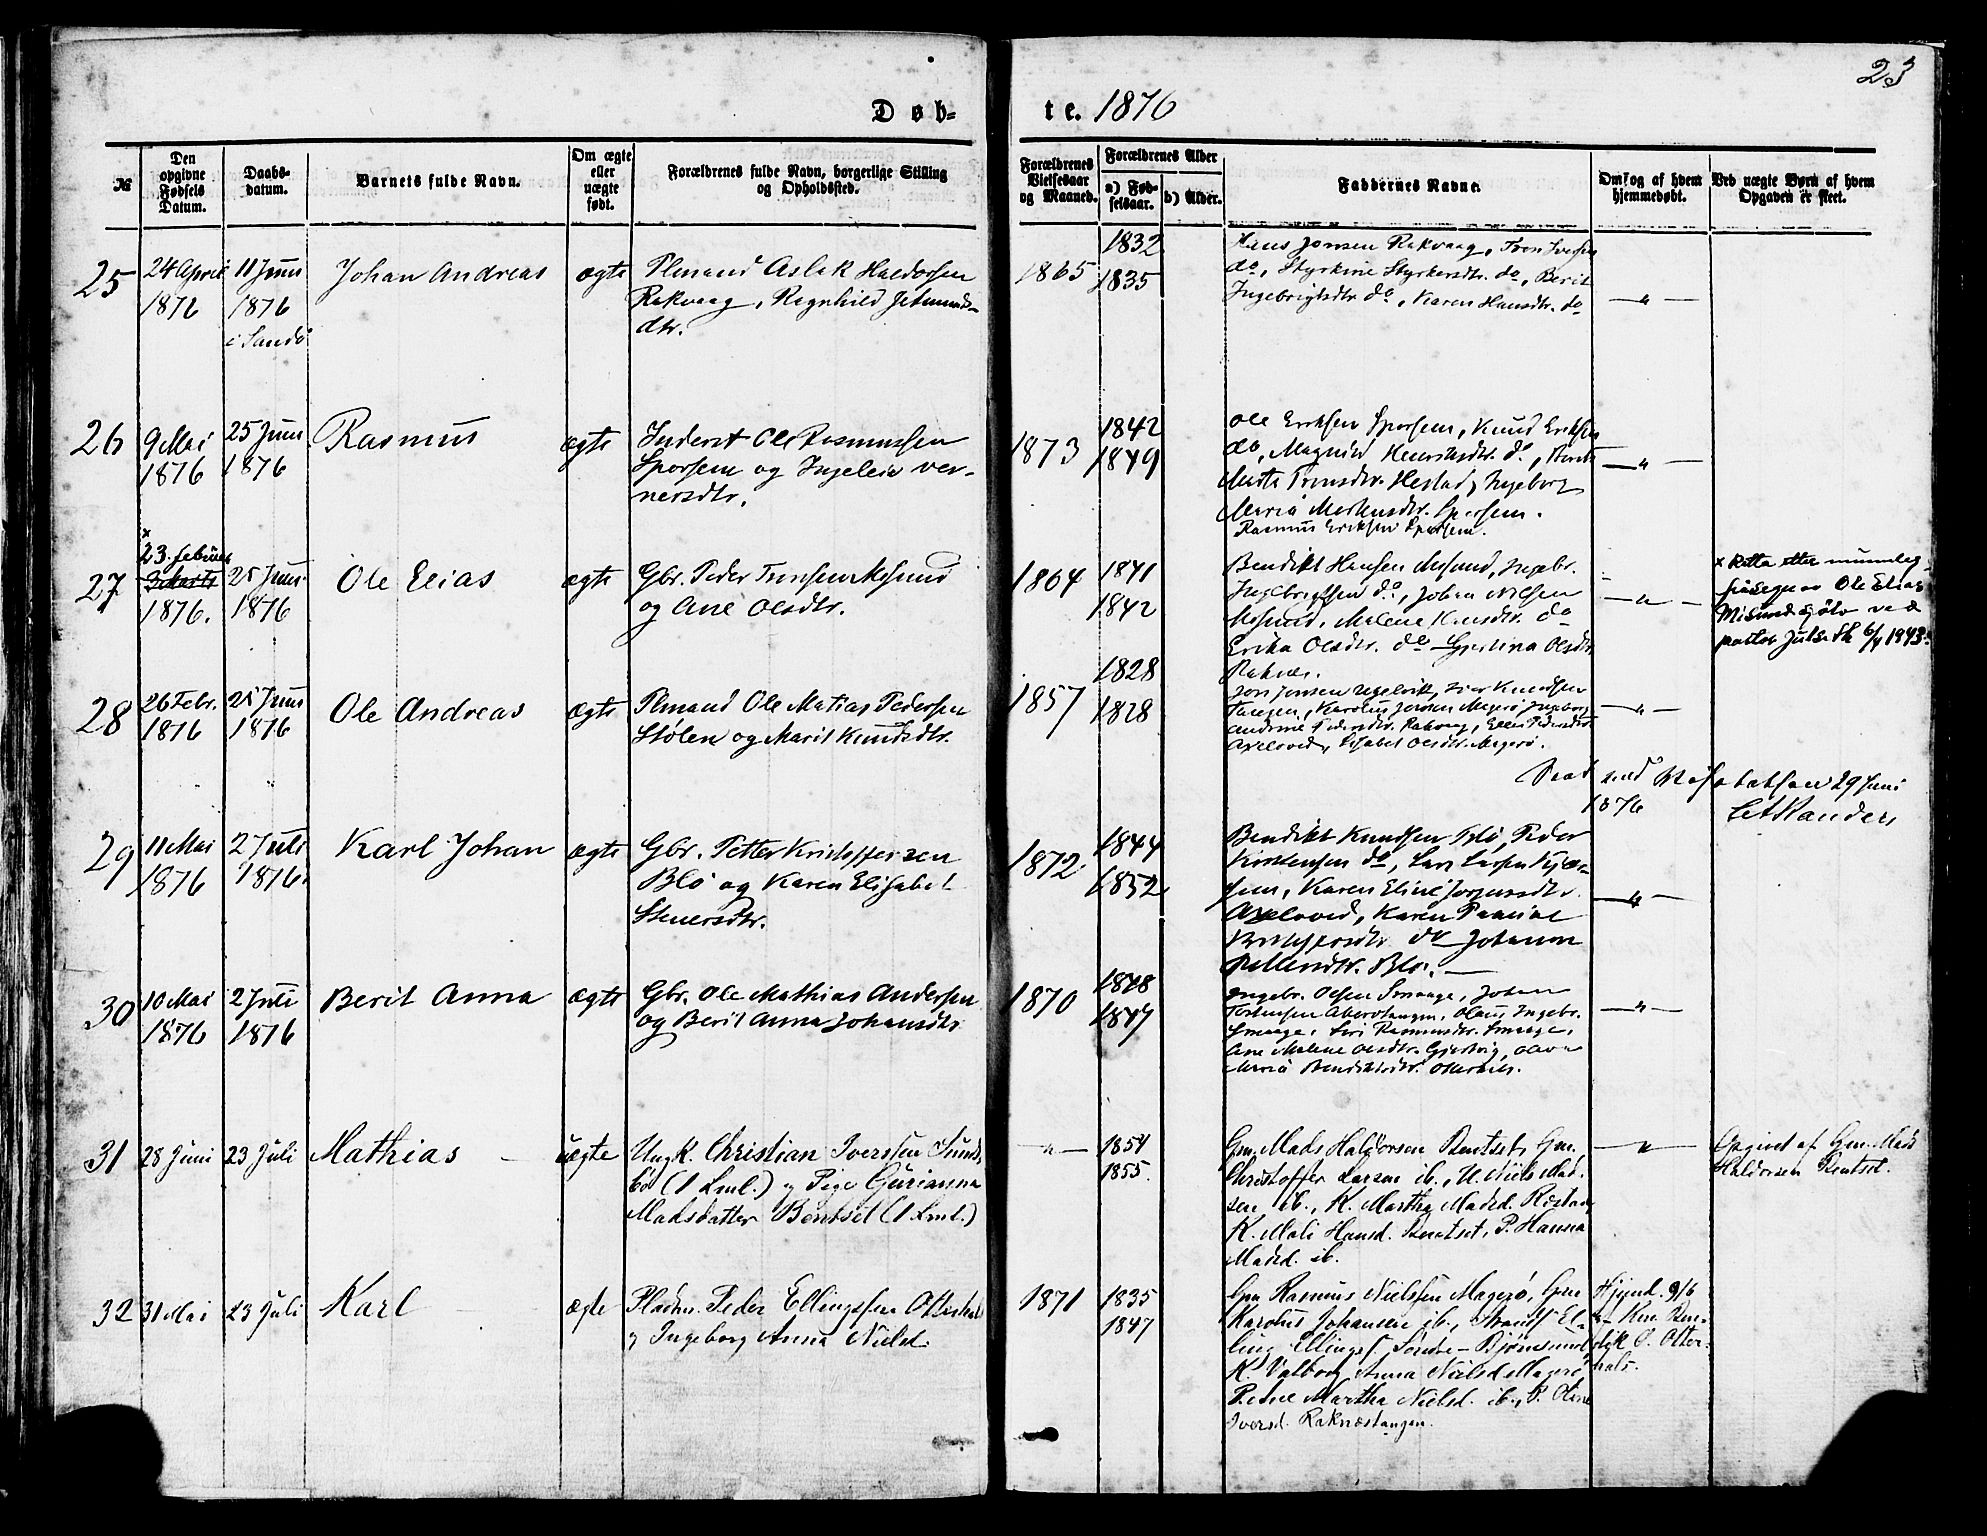 23
Døb-
te. 1876
№
Den opgivne Fødsels Datum.
Daabs-datum.
Barnets fulde Navn.
Om ægte eller uægte født.
Forældrenes fulde Navn, borgerlige Stilling og Opholdssted.
Forældrenes Vielsesaar og Maaned.
Forældrenes Alder
a) Fød-selsaar.
b) Alder.
Faddernes Navne.
Om og af hvem hjemmedøbt.
Ved uægte Børn af hvem Opgaven er skeet.
25
24 April
1876
11 Juni
1876
i Sandø
Johan Andreas
ægte
Plmand Aslak Haldorsen
Rakvaag, Ragnhild Jetmunds-
dtr.
1865
1832
1835
Hans Jonsen Rakvaag, Tron Iversen
do, Styrkine Styrkersdtr. do, Berit
Ingebrigtsdtr. do, Karen Hansdtr. do
—〃—
26
9 Mai
1876
25 Juni
1876
Rasmus
ægte
Inderst Ole Rasmussen
Sporsem og Ingeleiv Ver-
nersdtr.
1873
1842
1849
Ole Eriksen Sporsem, Knud Eriksen
do, Magnild Henriksdtr. do, Berit
Marta Tronsdtr. Hestad, Ingeborg
Maria Markusdtr. Sporsem.
Rasmus Eriksen Sporsem.
—〃—
27
×
23. februar
3 Marts
1876.
25 Juni
1876
Ole Elias
ægte
Gbr. Peder Tronsen Mesund
og Ane Olsdtr.
1864
1841
1842
Bendikt Hansen Mesund, Ingebr.
Ingebrigtsen do, Johan Nilsen
Mesund, Malene Knudsdtr. do
Erika Olsdtr. do Gjertina Olsdtr.
Raknes.
—〃—
× Retta etter munnleg
frásegn av Ole Elias
Misund sjølv ved
pastor Julseth 6/4 1943.
28
26 Febr.
1876
25 Juni
1876
Ole Andreas
ægte
Plmand Ole Matias Pedersen
Stølen og Marit Knudsdtr.
1857
1828
1828
Jon Jonsen Ugelvik, Iver Knudsen
Tangen, Karolus Jonsen Magerø, Ingeborg
Andrine Pedersdtr. Rakvaag, Ellen Pedersdtr.
Axelvoed, Lisabet Olsdtr. Magerø.
—〃—
29 Juni
1876
29
11 Mai
1876
2 Juli
1876.
Karl Johan
ægte
Gbr. Petter Kristoffersen
Blø og Karen Elisabet
Stenersdtr.
1872
1844
1852
Bendikt Knudsen Blø, Peder
Kristensen do, Lars Larsen
Karen Eline
Axelvoed, Karen Pauline
do Johanna
Blø.
—〃—
30
10 Mai
1876
2 Juli
1876
Berit Anna
ægte
Gbr. Ole Mathias Andersen
og Berit Anna Johansdtr.
1870
1848
1847
Ingebr. Olsen Smaage, Johan
Torstensen Aberostangen, Olaus Ingebr.
Smaage, Siri Rasmusdtr. Smaage,
Ane Malene Olsdtr. Gjertvig,
Maria Bendiktsdtr. Oterhals.
—〃—
31
28 Juni
23 Juli
Mathias
uægte
Ungk. Christian Iversen Sunds-
bø (1 Lml.) og Pige Gurianna
Madsdatter Bentset (1 Lml.)
—〃—
1854
1855.
Gm. Mads Haldorsen Bentset, Gm.
Christoffer Larsen ib., U. Niels Mad-
sen ib., K. Martha Madsd. Røstad,
K. Mali Hansd. Bentset, P. Hanna
Madsd. ib.
—〃—
Opgivet af Gm. Mads
Haldorsen Bentset.
32
31 Mai
23 Juli
Karl
ægte
Pladsm. Peder Ellingssen Otterhals
og Ingeborg Anna Nielsd.
1871
1835
1847
Gm. Rasmus Nielssen Magerø, Gm.
Karolus Johansen ib., Strands. El-
ling Ellingss. Søndre-Bjørnsund,
K. Valborg Anna Nielsd Magerø,
P. Martha Nielsd. ib., P. Oline
Iversd. Raknæstangen.
Hjemd. 9/6
Ben-
dik O. Otter-
hals.